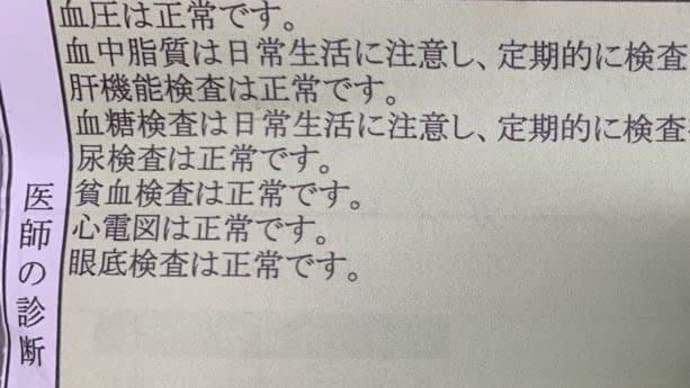 血圧は正常です。
血中脂質は日常生活に注意し、定期的に検査
肝機能検査は正常です。
血糖検査は日常生活に注意し、定期的に検査
尿検査は正常です。
貧血検査は正常です。
心電図は正常です。
眼底検査は正常です。
医師の診断